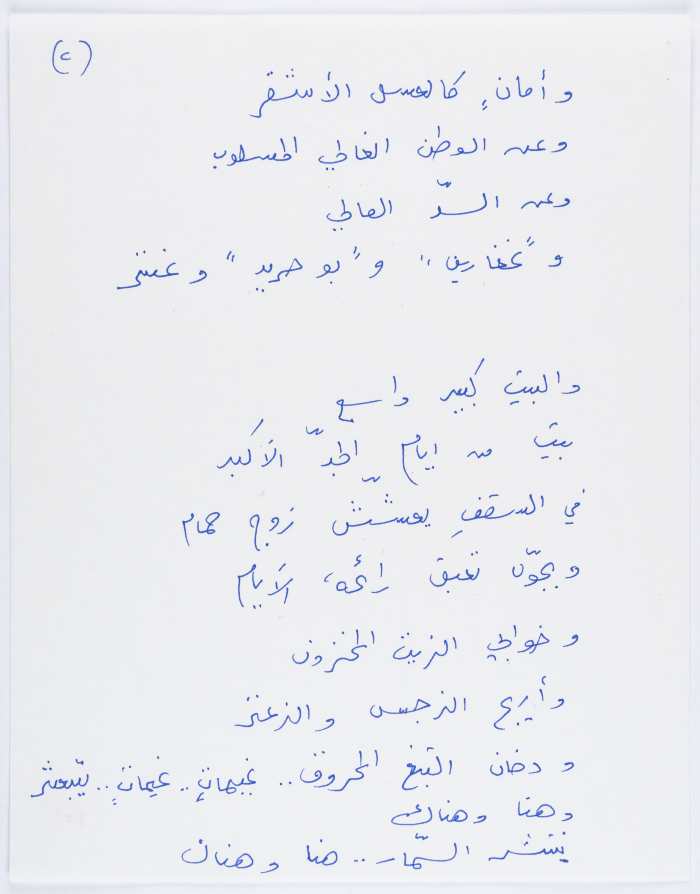 (٢)
وأمانٍ كالعسل الأشقر
وعن الوطن الغالي المسلوب
وعن السدّ العالي
و"غفارين" و"بو حريد" وعنتر
والبيت كبير واسع
بيت من ايام الجدّ الأكبر
في السقفِ يعشّش زوج حمام
وبجوّه تعبَق رائحة الأيام
وخوابي الزيت المخزون
وأريج النرجس والزعتر
ودخان التبغ المحروق.. غيماتٍ.. غيماتٍ.. يتبعثر
وهنا وهناك
ينتشر السمّار.. هنا وهناك